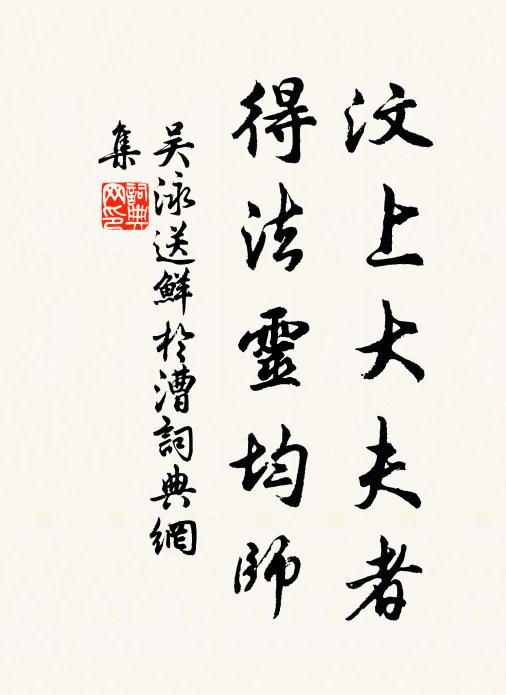 汶上大夫者
得法靈均師
吴泳送鮮於漕詞典網
集
詞典
网印